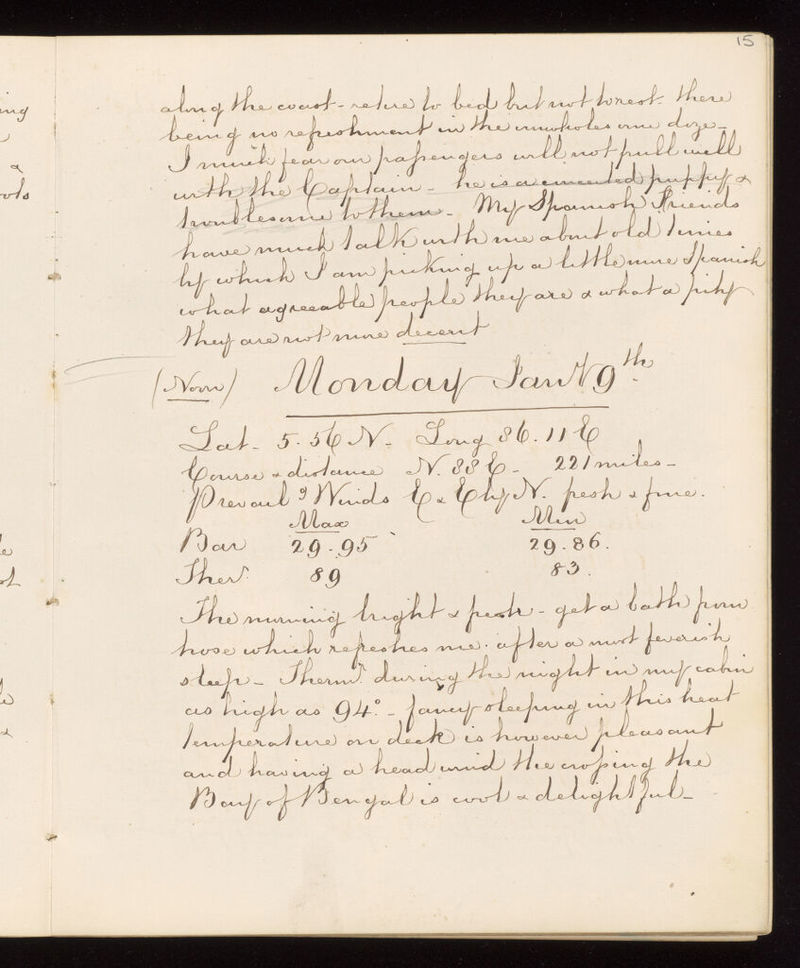 15
along the coast - retire to bed but not to rest. there
being no refreshment in the unwholesome doze -
I much fear our passengers will not pull well
with the Captain - he is a conceited puppy &
troublesome to them - My Spanish Friends
have much talk with me about old times
by which I am picking up a little more Spanish
what agreeable people they are & what a pity
they are not more decent
(Noon) Monday Jany 9th.
Lat - 5.56 N - Long 86.11 E
Course & distance N. 88 E - 221 miles -
Prevailg Winds E & E by N. fresh & fine.
Max Min
Bar 29.95 29.86.
Ther. 89 83.
The morning bright & fresh - get a bath from
hose which refreshes me. after a most feverish
sleep - Thermr. during the night in my cabin
as high as 94° - fancy sleeping in this heat
temperature on deck is however pleasant
and having a head wind the crossing the
Bay of Bengal is cool & delightful -
ing
a
ots